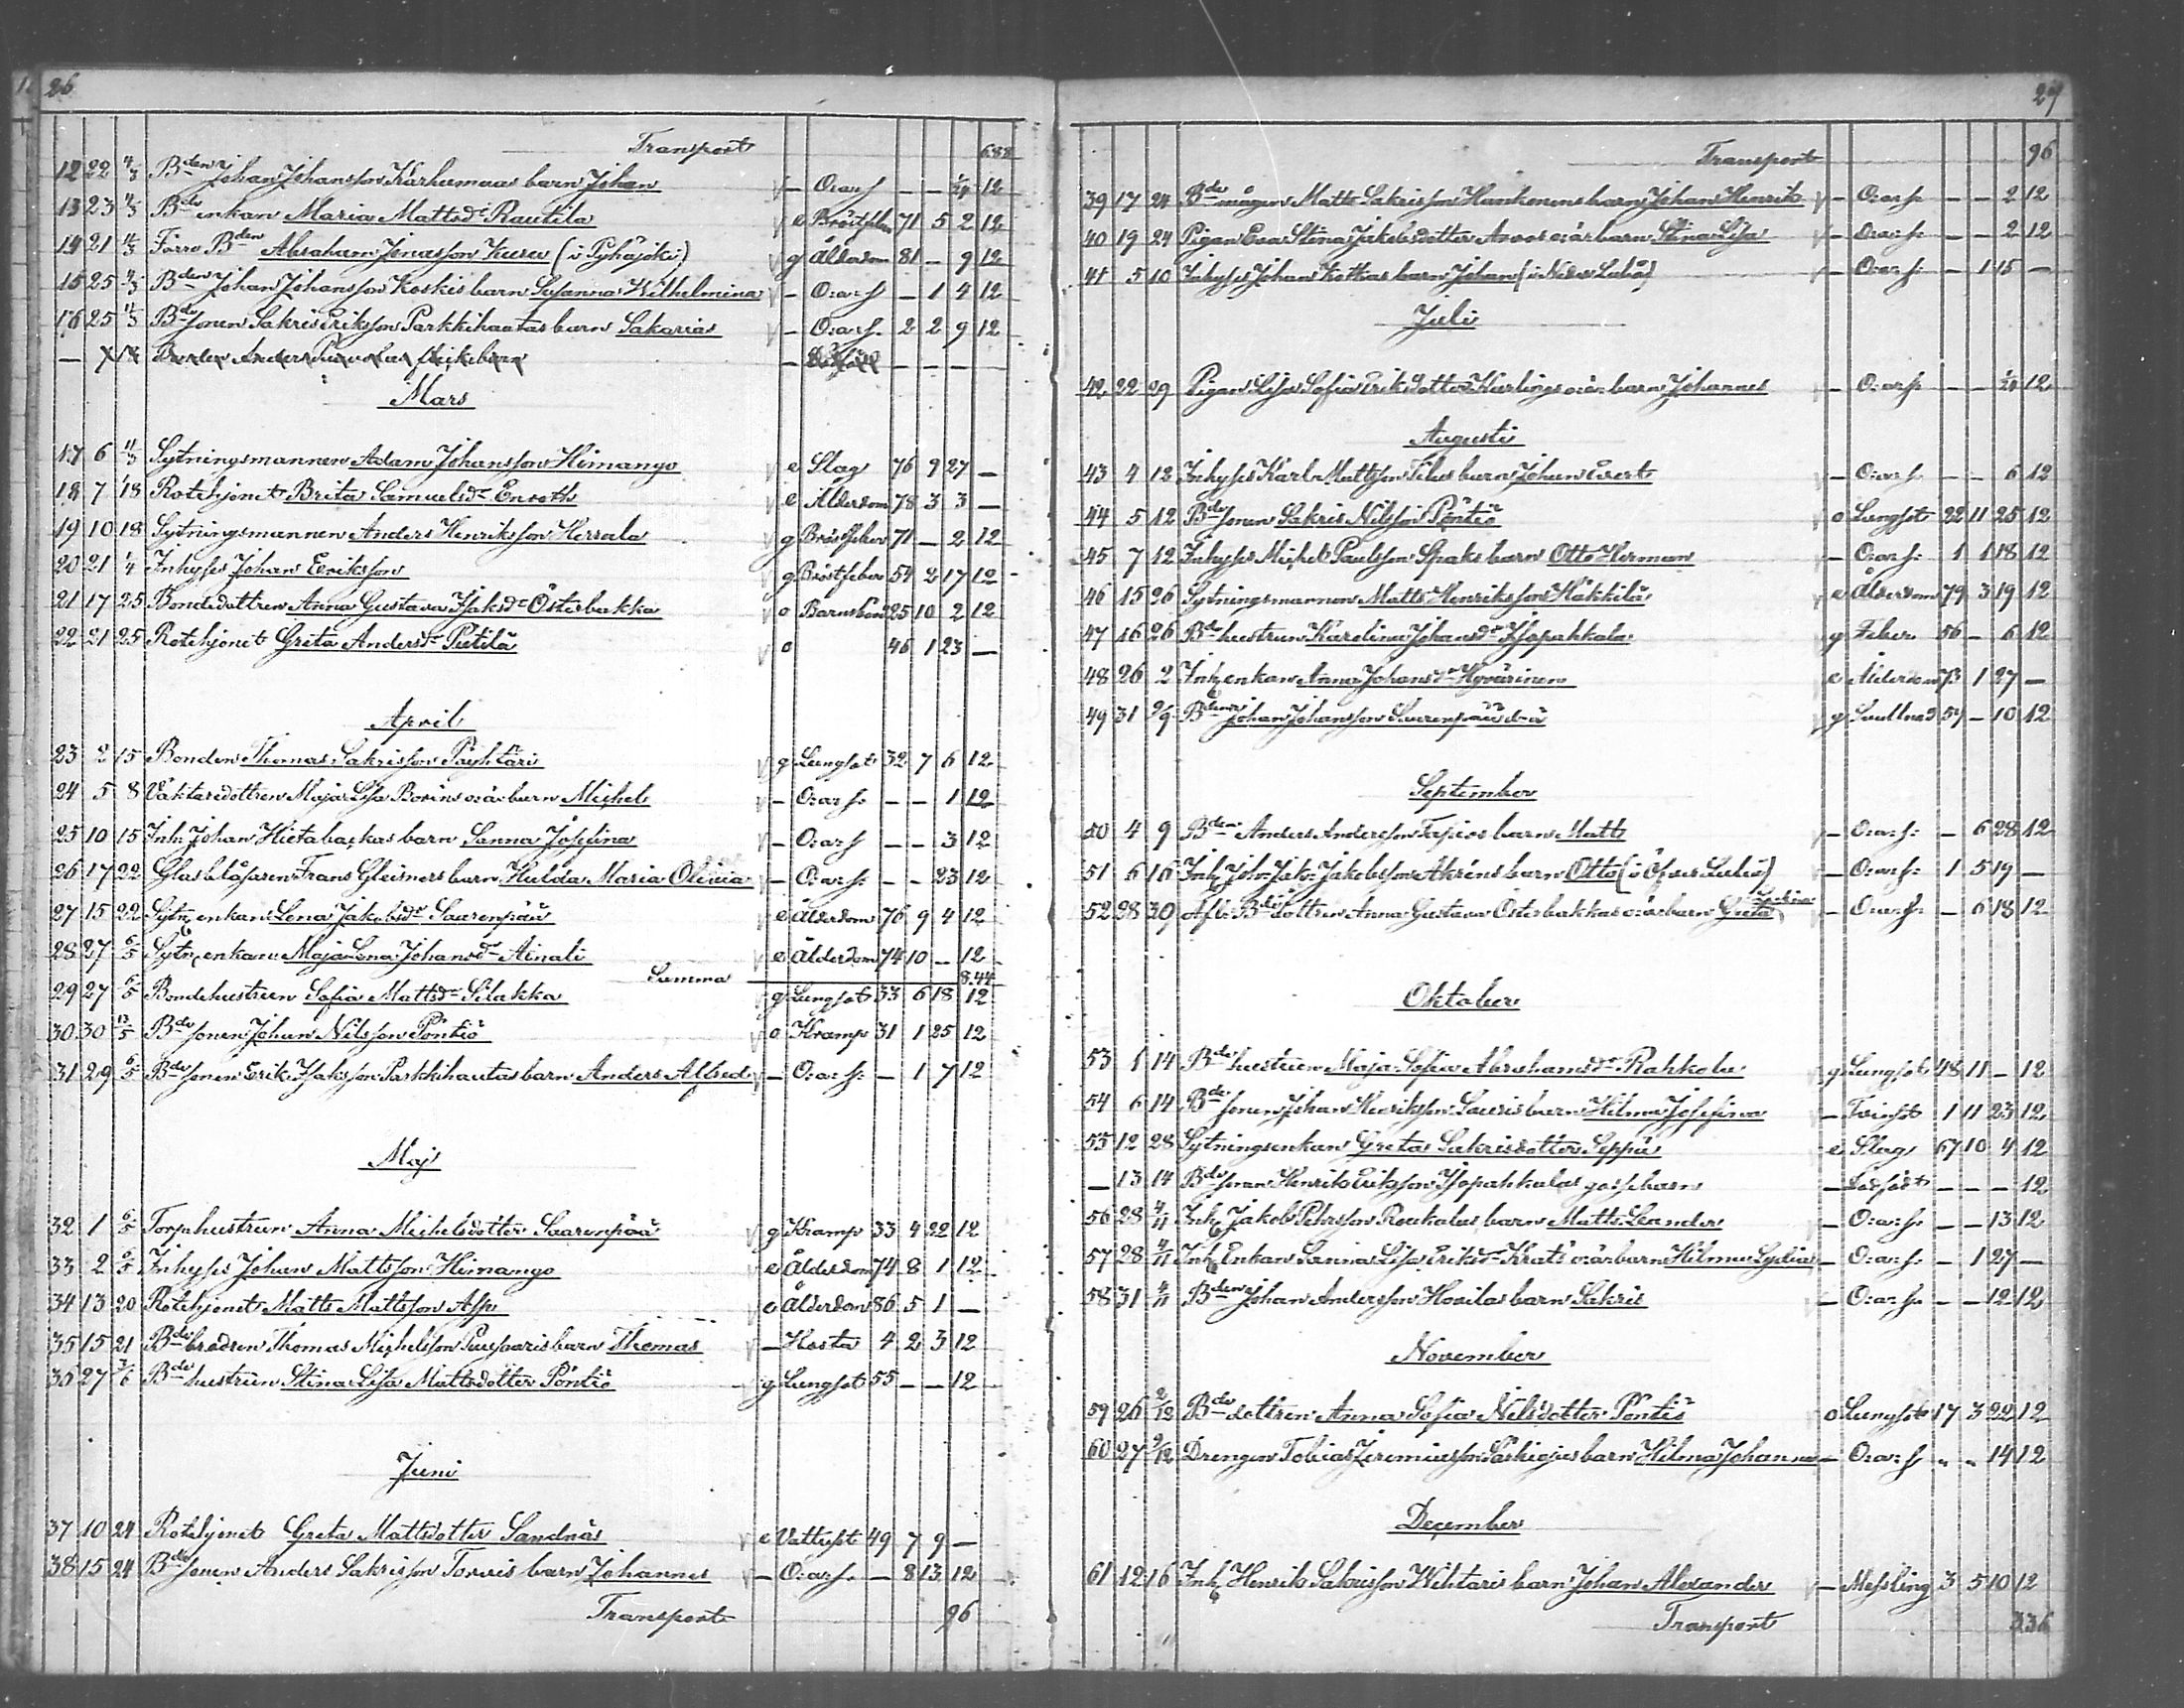 26
Transport 688
12 22 4/3 Bden Johan Johansson Karhumaas barn Johan – O:ar s – – 1/24 12
13 23 4/3 Bde enkan Maria Mattsdr Rautila e Bröstfeber 71 5 2 12
14 21 4/3 Förre Bden Abraham Jonasson Kusew (i Pyhäjoki) g Ålderdom 81 – 9 12
15 25 4/3 Bden Johan Johansson Koskis barn Susanna Wilhelmina – O:ar s – 1 4 12
16 25 4/3 Bde sonen Sakris Eriksson Parkkihautas barn Sakarias – O:ar s. 2 2 9 12
Mars
17 6 11/3 Sytningsmannen Adam Johansson Himango e Slag 76 9 27 –
18 7 18 Rotehjonet Brita Samuelsdr Enroth e Ålderdom 78 3 3 –
19 10 18 Sytningsmannen Anders Henriksson Herrala g Bröstfeber 71 – 2 12
20 21 1/4 Inhyses Johan Eriksson g Bröstfeber 54 2 17 12
21 17 25 Bondedottren Anna Gustava Isaksdr Österbakka o Barnsbörd 25 10 2 12
22 21 25 Rotehjonet Greta Andersdr Pietilä o 46 1 23 –
April
23 2 15 Bonden Thomas Sakrisson Pöyhtäri g Lungsot 32 7 6 12
24 5 8 Vaktaredottren Maja Lisa Borins o:ä: barn Michel – O:ar s: – – 1 12
25 10 15 Inh. Johan Hietabackas barn Sanna Josefina – O:ar s – – 3 12
26 17 22 Glasblåsaren Frans Gleisners barn Hulda Maria Olivia – O:ar s: – – 23 12
27 15 22 Sytn enkan Lena Jakobsdr Saarenpää e Ålderdom 76 9 4 12
28 27 6/5 Sytn enkan Maja Lena Johansdr Ainali e Ålderdom 74 10 – 12
Summa 8.44
29 27 6/5 Bondehustrun Sofia Mattsdr Silakka g Lungsot 33 6 18 12
30 30 13/5 Bde sonen Johan Nilsson Pöntiö o Kramp 31 1 25 12
31 29 6/5 Bde sonen Erik Isaksson Parkkihautas barn Anders Alfred – O:ar s: – 1 7 12
Maj
32 1 6/5 Torphustrun Anna Michelsdotter Saarenpää g Kramp 33 4 22 12
33 2 6/5 Inhyses Johan Mattsson Himango e Ålderdom 74 8 1 12
34 13 20 Rotehjonet Matts Mattsson Asp e Ålderdom 86 5 1 –
35 15 21 Bde brodren Thomas Michelsson Pueskaris barn Thomas – Hosta 4 2 3 12
36 27 3/6 Bde hustrun Stina Lisa Mattsdotter Pöntiö g Lungsot 55 – – 12
Juni
37 10 24 Rotehjonet Greta Mattsdotter Sandnäs e Vattusot 49 7 9 –
38 15 24 Bde sonen Anders Sakrisson Torvis barn Johannes – O:ar s. – 8 13 12
Transport 96
27
Transport 96
39 17 24 Bde mågen Matts Sakrisson Hankonens barn Johan Henrik – O:ar s. – – 2 12
40 19 24 Pigan Eva Stina Jakobsdotter o:ä: barn Stina Lisa – O:ar s: – – 2 12
41 5 10 Inhyses Johan Kotkas barn Johan – O:ar s: – 1 15 –
Juli
42 22 29 Pigan Lisa Sofia Eriksdotter Karlings o:ä: barn Johannes – O:ar s – – 1/24 12
Augusti
43 4 12 Inhyses Karl Mattsson Tilus barn Johan Evert – O:ar s. – – 6 12
44 5 12 Bde sonen Sakris Nilsson Pöntiö o Lungsot 22 11 25 12
45 7 12 Inhyses Michel Paulsson Spaks barn Otto Herman – O:ar s: 1 1 18 12
46 15 26 Sytningsmannen Matts Henriksson Häkkilä e Ålderdom 79 3 19 12
47 16 26 Bde hustrun Karolina Johansdr Isopahkala g Feber 56 – 6 12
48 26 2 Inh enkan Anna Johansdr Hyvärinen e Ålderdom 73 1 27 –
49 31 9/9 Bden Johan Johansson Saarenpää g 54 – 10 12
September
50 4 9 Bden Anders Andersson Tapios barn Matts – O:ar s: – 6 28 12
51 6 16 Inh Joh. Jak: Jakobsson Ahréns barn Otto – O:ar s: 1 5 19 –
52 28 30 Afl. Bde dottren Anna Gustava Österbakkas o:ä: barn Greta Josefina – O:ar s: – 6 18 12
Oktober
53 1 14 Bde hustrun Maja Sofia Abrahamsdr Rahkola g Lungsot 48 11 – 12
54 6 14 Bde sonen Johan Henriksson Sauris barn Hilma Josefina – Tvinsot 1 11 23 12
55 12 28 Sytningsenkan Greta Sakrisdotter Seppä e Slag 67 10 4 12
– 13 14 Bde sonen Henrik Eriksson Isopahkalas gossebarn – Dödfödt – – – 12
56 28 4/11 Inh Jakob Pehrsson Roukalas barn Matts Leander – O:ar s: – – 13 12
57 28 4/11 Inh Enkan Sanna Lisa Eriksdr Krats o:ä: barn Hilma Lydia – O:ar s: – 1 27 –
58 31 4/11 Bden Johan Andersson Hoxilas barn Sakris – O:ar s. – – 12 12
November
59 26 2/12 Bde dottren Anna Sofia Nilsdotter Pöntiö o Lungsot 17 3 22 12
60 27 9/12 Drengen Tobias Jeremiasson Särkiojas barn Hilma Johanna – O:ar s „ „ 14 12
December
61 12 16 Inh Henrik Sakrisson Wihtaris barn Johan Alexander – Messling 3 5 10 12
Transport 336